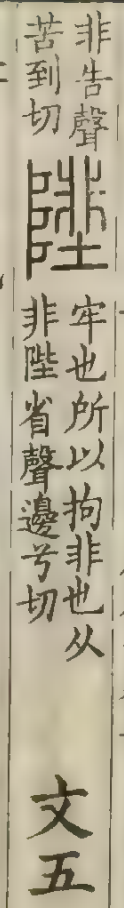 非告聲
苦到切
牢也所以拘非也从
非陛省聲邊兮切
文五